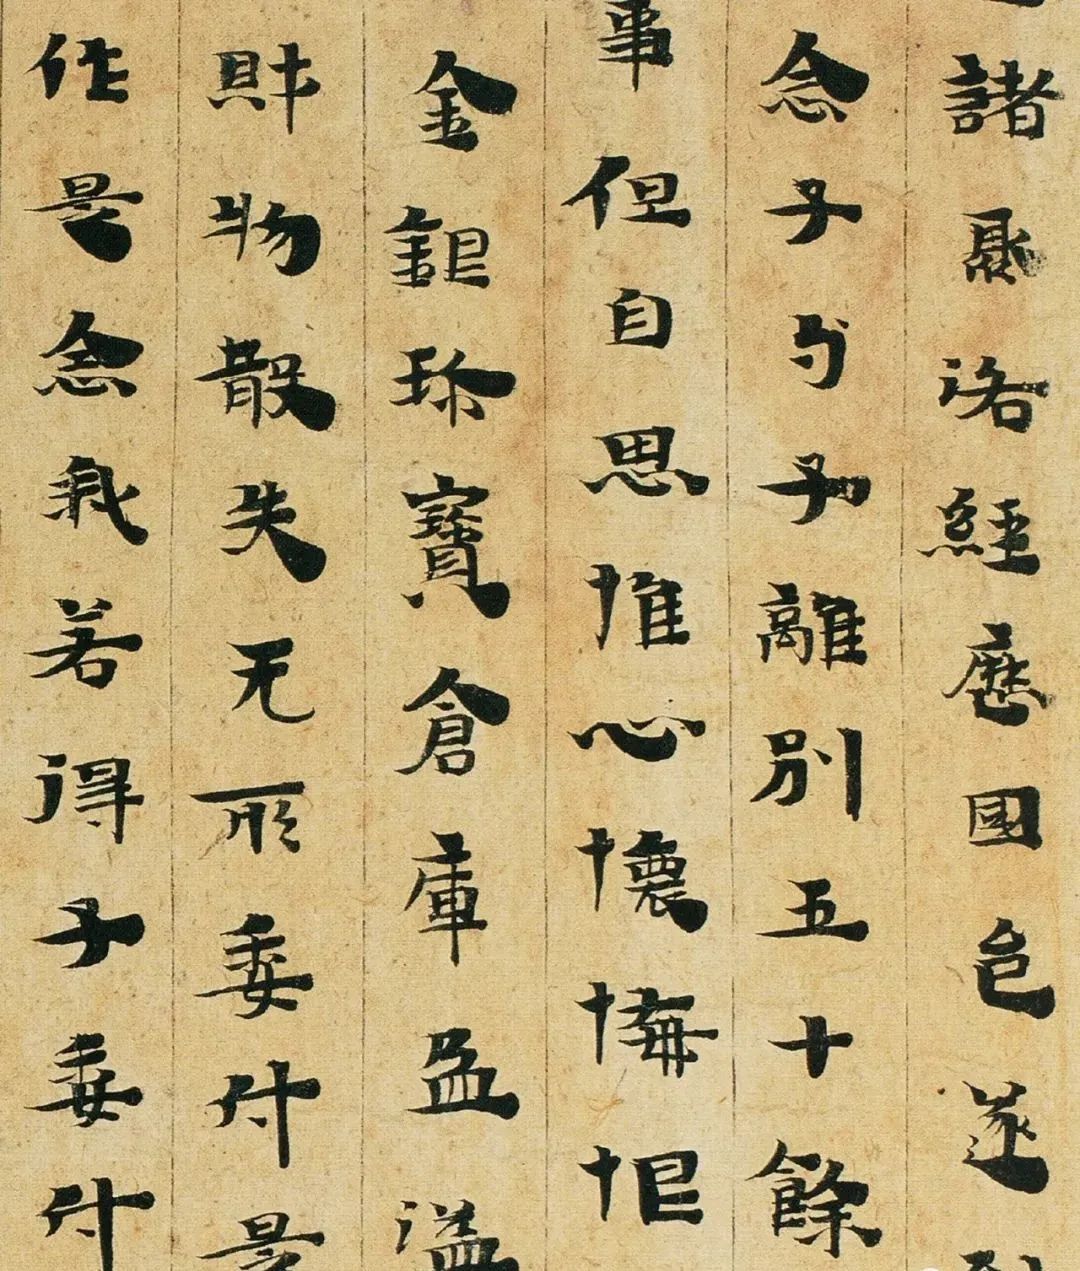 諸聚落經歷國邑遂
念子与子離別五十餘
事但自思惟心懷悔恨
金銀珍寶倉庫盈溢
財物散失无所委付是
作是念我若得子委付